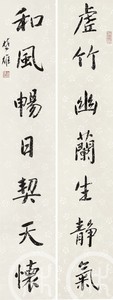 虛竹幽蘭生靜氣
和風暢日契天懷